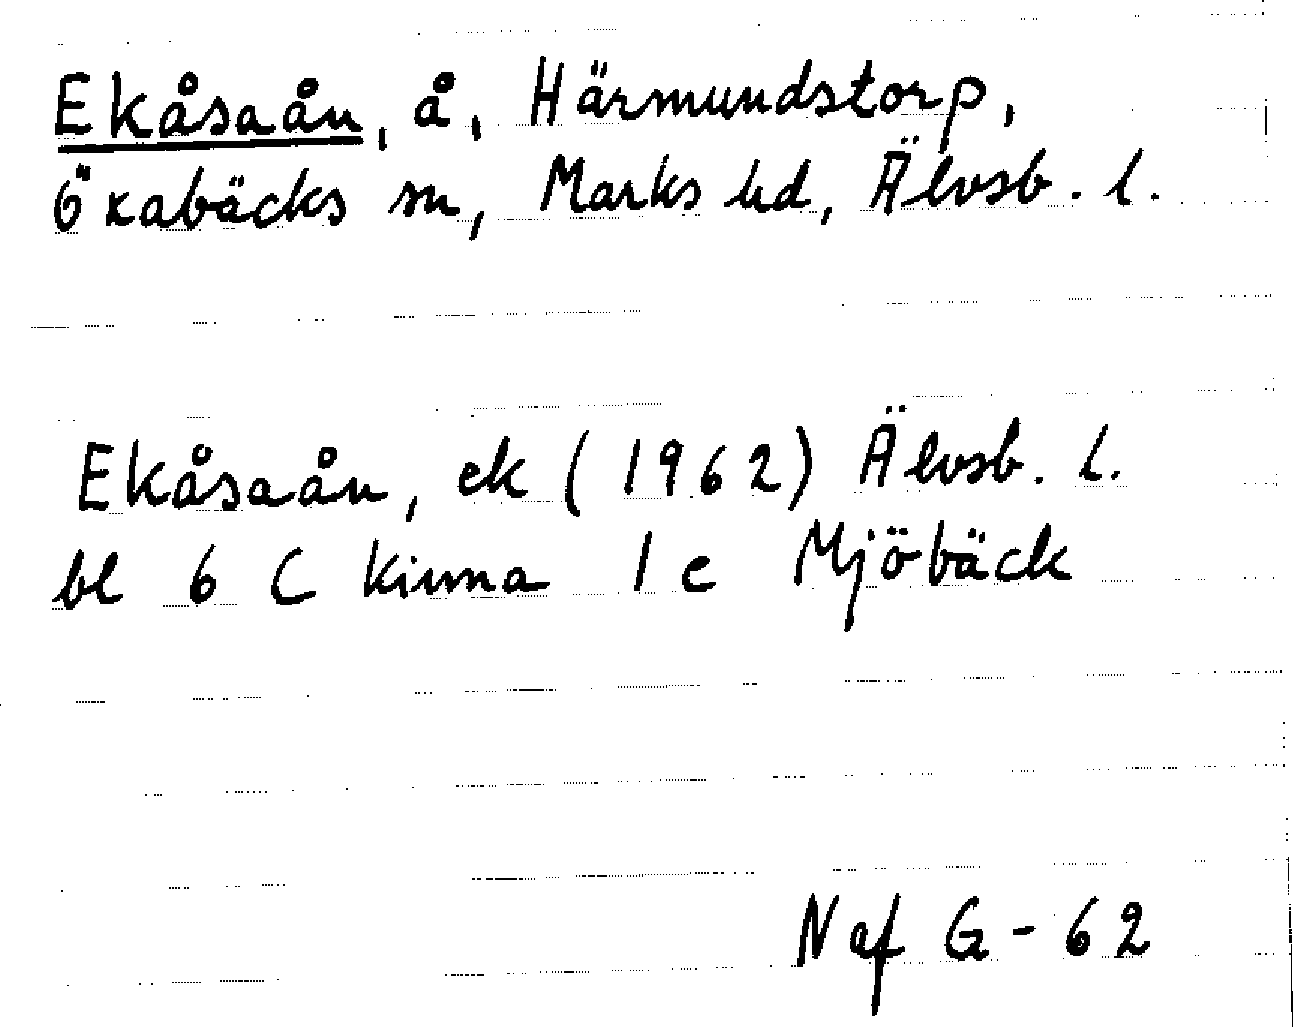 Ekåsaån, å, Härmundstorp,
Öxabäcks sn, Marks hd, Älvsb. l.
Ekåsaån, ek (1962) Älvsb. L.
bl 6 C Kinna 1 e Mjöbäck
Naf G-62